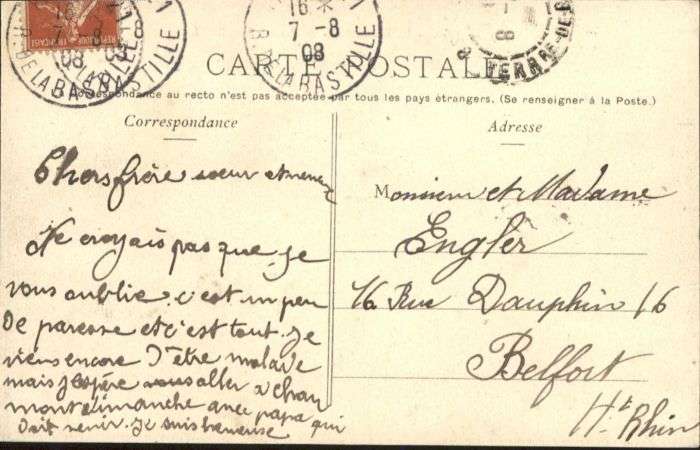 16
7 - 8
08
BASTILLE
16 *
7 - 8
08
R. DE LA BASTILLE
CARTE POSTALE
Correspondance au recto n'est pas acceptée par tous les pays étrangers. (Se renseigner à la Poste.)
Correspondance
Adresse
Chers frère soeur et neveu
Ne croyais pas que je
vous oublie c'est un peu
de paresse et c'est tout. Je
viens encore d'être malade
mais j'espère vous aller
dimanche avec papa qui
doit venir. Je suis heureuse
Monsieur et Madame
Engler
16 Rue Dauphin 16
Belfort
Ht Rhin